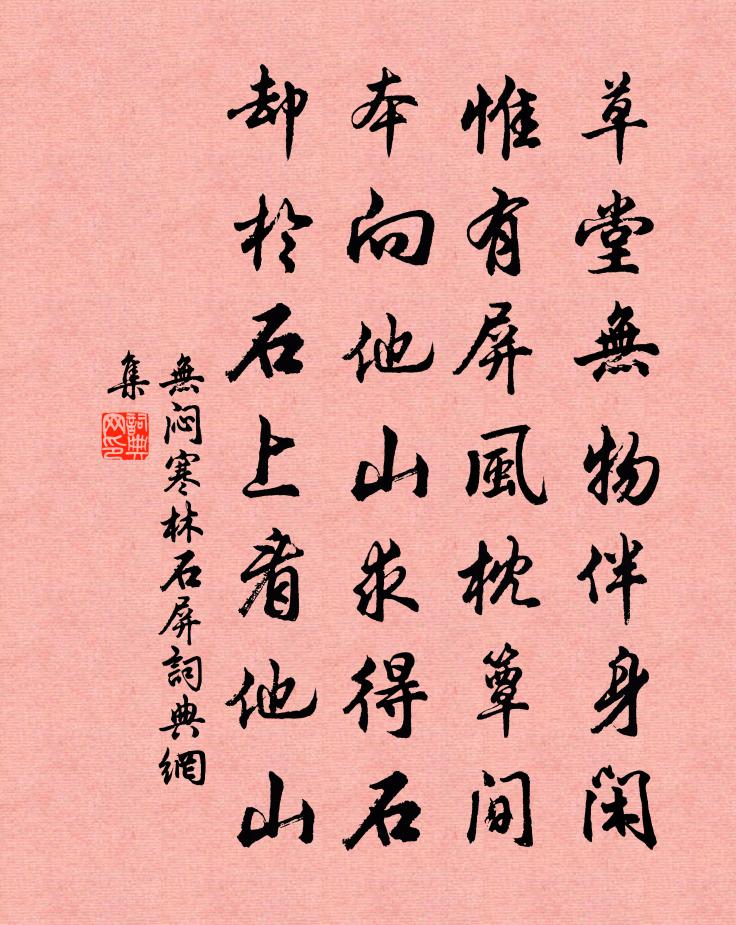 草堂無物伴身閑
惟有屏風枕簟間
本向他山求得石
却於石上看他山
無闷寒林石屏詞典網
集
詞典
网印